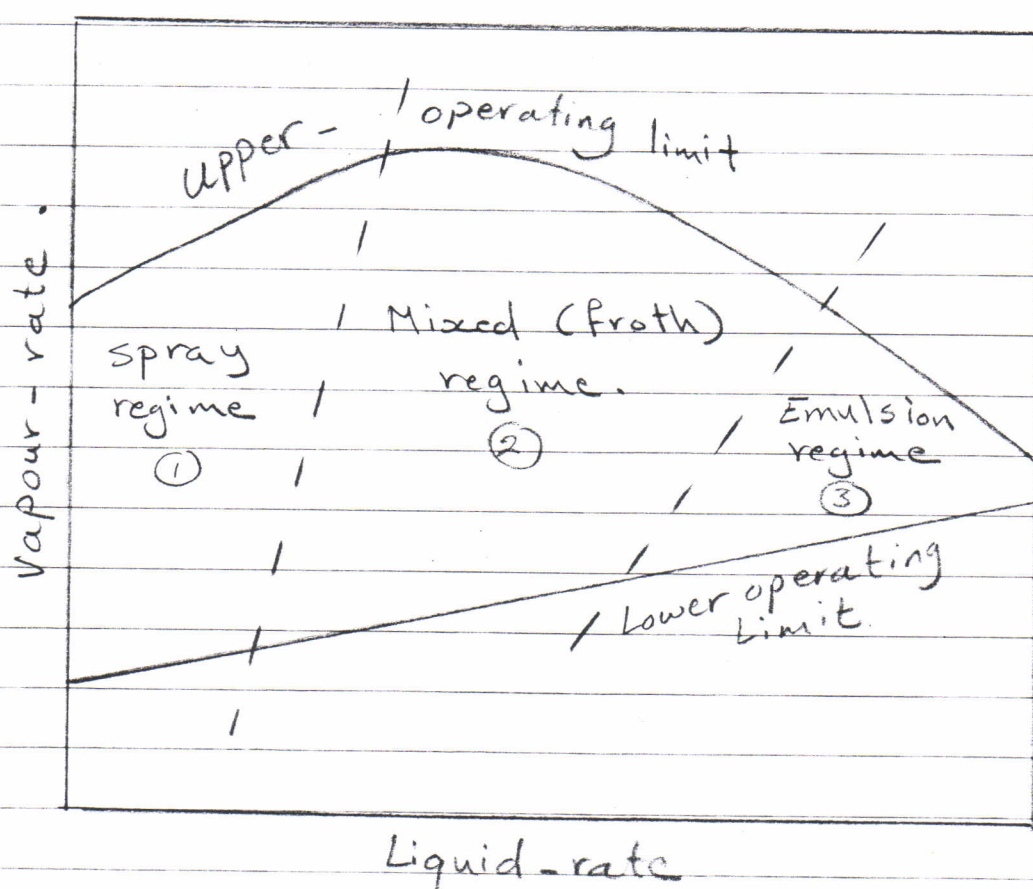 upper- operating limit
Vapour-rate.
spray
regime
①
Mixed (froth)
regime.
②
Emulsion
regime
③
Lower operating
Limit.
Liquid-rate